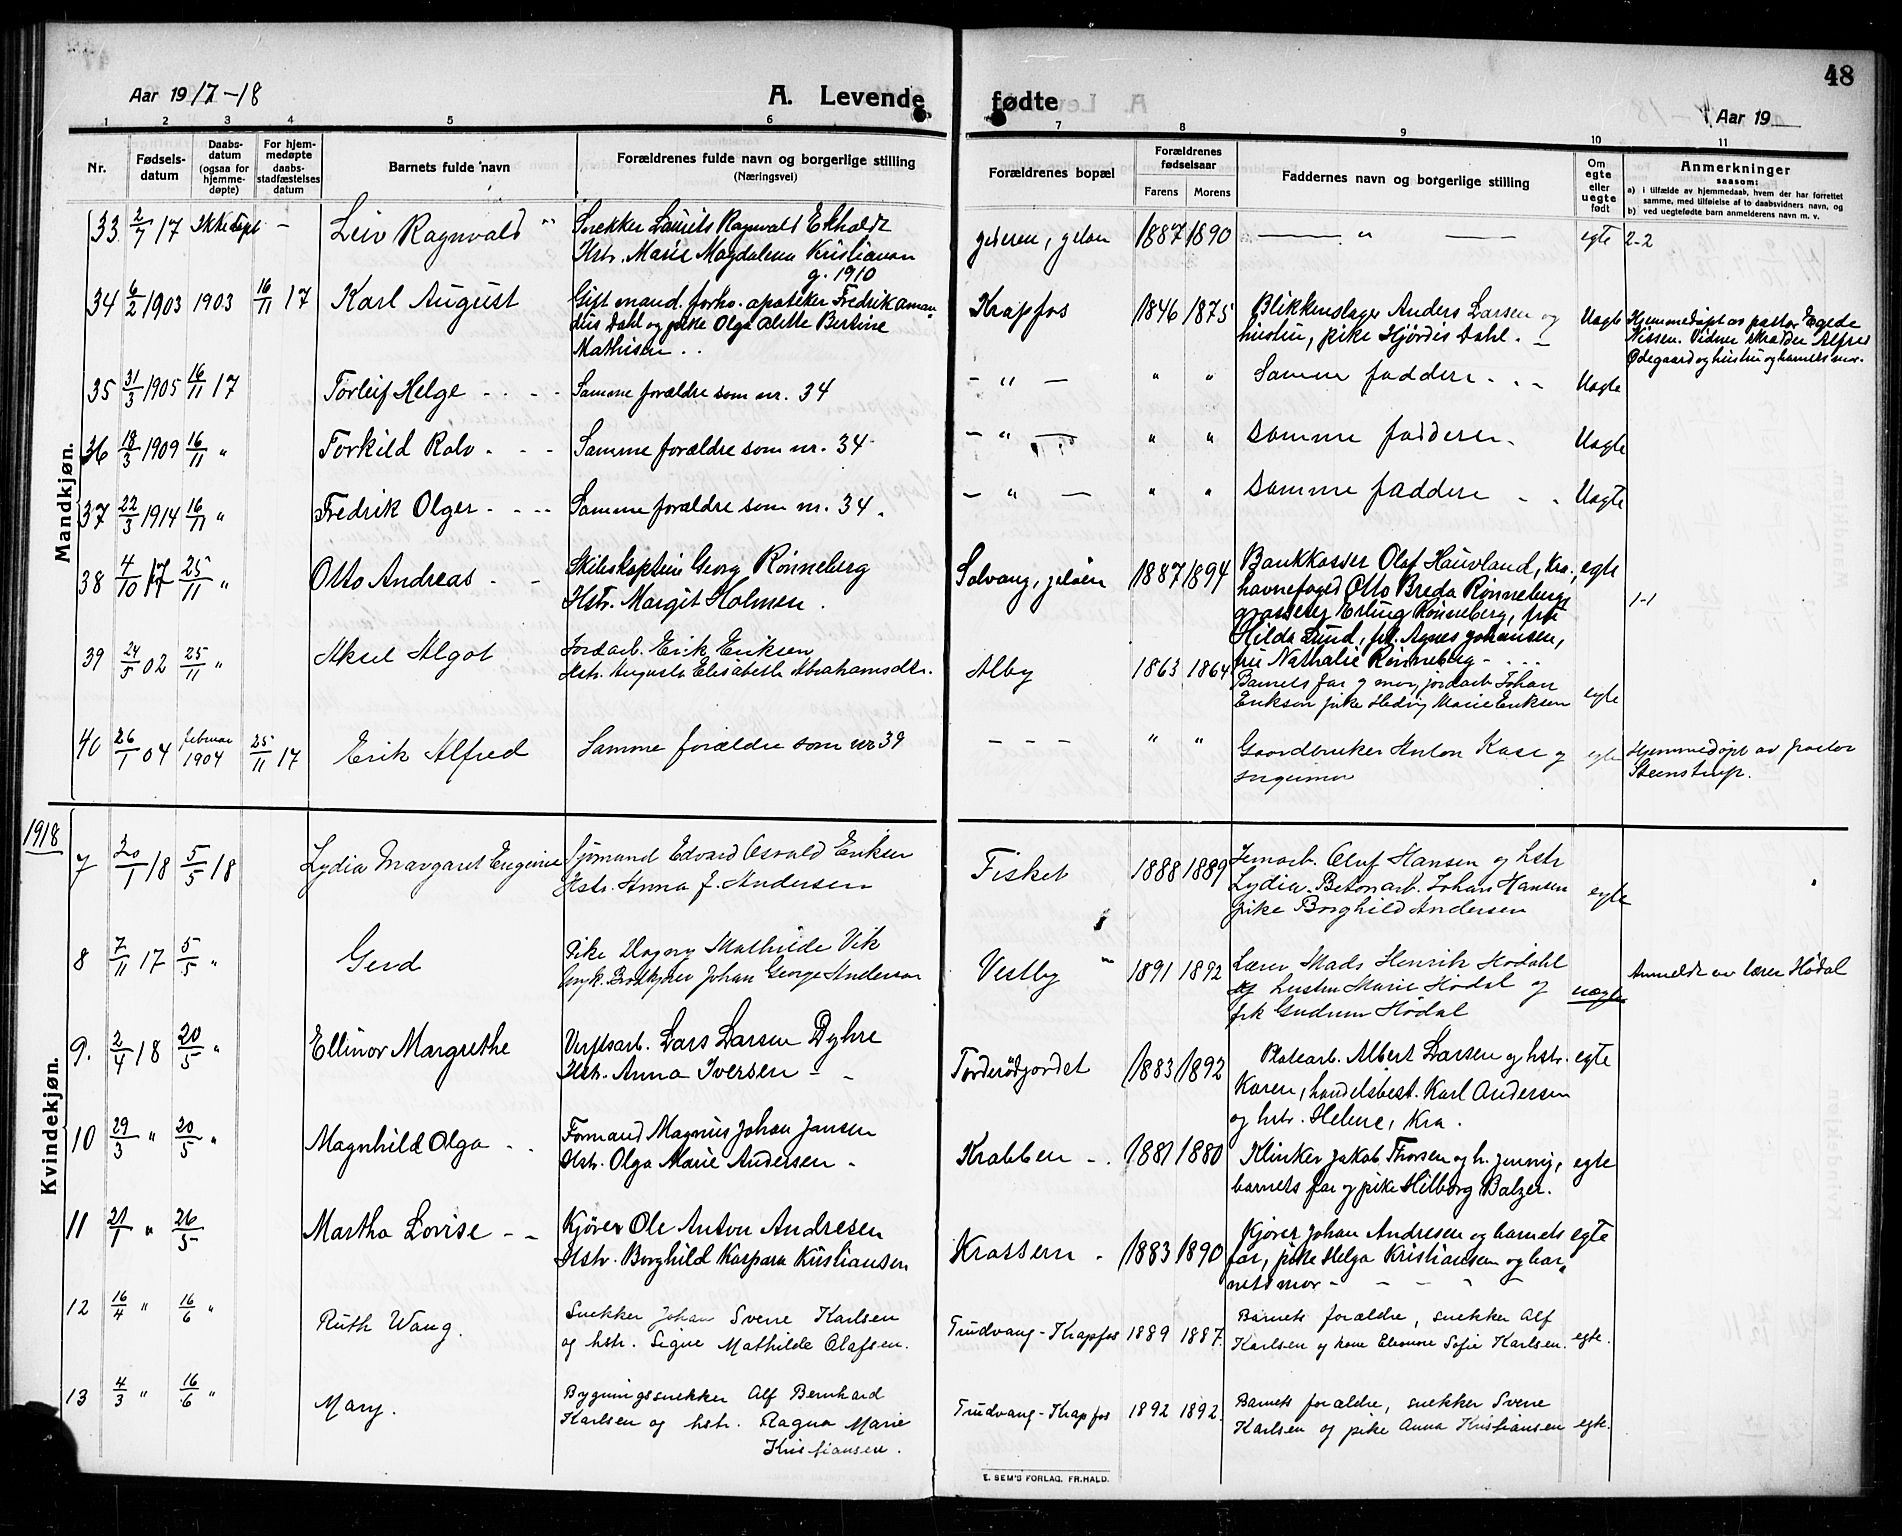 Aar 1917-18
A. Levende fødte
48
Aar 19
1 2 3 4 5 6 7 8 9 10 11
Nr.
Fødselsdatum
Daabsdatum (ogsaa for hjemmedøpte)
For hjemmedøpte daabsstadfæstelses datum
Barnets fulde navn
Forældrenes fulde navn og borgerlige stilling
(Næringsvei)
Forældrenes bopæl
Forældrenes fødselsaar
Farens Morens
Faddernes navn og borgerlige stilling
Om egte eller uegte født
Anmerkninger
saasom:
a) i tilfælde av hjemmedaab, hvem der har forrettet samme, med tilføielse af to daabsvidners navn, og
b) ved uegtefødte barn anmelderens navn m. v.
Mandkjøn.
33 2/7 17 Ikke døpt - Leiv Ragnvald " Snekker Laurits Ragnvald Ekholdt
Hstr. Marie Magdalena Kristiansen
g. 1910
Jeløen 1887 1890 — " — egte 2-2
34 6/2 1903 1903 16/11 17 Karl August Gift mand. forhv. apoteker Fredrik Aman-
dus Dahl og pike Olga Alette Bertine
Mathisen . .
Krapfos 1846 1875 Blikkenslager Anders Larsen og
hustru, pike Hjørdis Dahl. - Uegte
Hjemmedøpt av pastor Egede
Nissen. Vidner skrædder Alfred
Ødegaard og hustru og barnets mor.
35 31/3 1905 16/11 17 Torleif Helge - - - - Samme forældre som nr. 34 - " — " " Samme faddere - . - Uegte
36 18/3 1909 16/11 " Torkild Rolv - - - Samme forældre som nr. 34 - " — " " Samme faddere - Uegte
37 22/3 1914 16/11 " Fredrik Olger - - - - Samme forældre som nr. 34 . - " — " " Samme faddere - . Uegte
38 4/10 17 25/11 " Otto Andreas - - Skibskaptein Georg Rønneberg
Hstr. Margit Holmen .
Solvang, Jeløen 1887 1894 Bankkasser Olaf Hauvland, Kra.,
havnefoged Otto Breda Rønneberg,
grosserer Erling Rønneberg, fru
Hilda Lund, frk. Agnes Johansen,
fru Nathalie Rønneberg - . . .
egte 1-1
39 24/5 02 25/11 " Aksel Algot Jordarb. Erik Eriksen
Hstr. Augusta Elisabeth Abrahamsdtr.
Alby 1863 1864 Barnets far og mor, jordarb. Johan
Eriksen pike Hedvig Marie Eriksen egte
40 26/1 04 februar 1904 25/11 17 Erik Alfred Samme forældre som nr 39 - - - " " Gaardbruker Anton Kase og
egte Hjemmedøpt av pastor
Steenstrup.
1918
Kvindekjøn.
7 20/1 18 5/5 18 Lydia Margaret Eugenie Sjømand Edvard Osvald Eriksen
Hstr. Anna J. Andersen
Fisket 1888 1889 Jernarb. Oluf Hansen og hstr
Lydia. Betonarb. Johan Hansen
pike Borghild Andersen egte
8 7/11 17 5/5 " Gerd Pike Dagny Mathilde Vik
Johan George Anderson
Vestby " 1891 1892 Lærer Mads Henrik Hødahl
og hustru Marie Hødal og
frk Gudrun Hødal uegte
Anmeldt av lærer Hødal
9. 2/4 18 20/5 " Ellinor Margrethe Verftsarb. Lars Larsen Dyhre
Hstr. Anna Iversen - -
Torderødjordet 1883 1892 Platearb. Albert Larsen og hstr. egte
Karen, handelsbest. Karl Andersen
og hstr. Helene, Kra.
10 29/3 " 20/5 " Magnhild Olga - - Formand Magnus Johan Jansen
Hstr. Olga Marie Andersen -
Krabben - . 1881 1880 Klinker Jakob Thorsen og h. Jenny, egte
barnets far og pike Hilborg Balzer.
11 21/1 " 26/5 Martha Lovise - - Kjører Ole Anton Andresen
Hstr. Borghild Kaspara Kristiansen
Krossern - 1883 1890 Kjører Johan Andresen og barnets egte
far, pike Helga Kristiansen og bar-
nets mor - - - - -
12 16/4 " 16/6 " Ruth Wang. Snekker Johan Sverre Karlsen
og hstr. Signe Mathilde Olafsen.
Trudvang-Krapfos 1889 1887. Barnets forældre, snekker Alf
Karlsen og kone Eleonore Sofie Karlsen. egte.
13 4/3 " 16/6 " Mary. Bygningssnekker Alf Bernhard
Karlsen og hstr. Ragna Marie
Kristiansen.
Trudvang-Krapfos 1892 1892. Barnets forældre, snekker Sverre
Karlsen og pike Anna Kristiansen egte.
E. SEM'S FORLAG, FR.HALD.